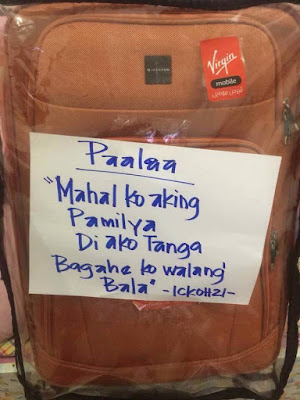 Virgin
mobile
Paalaa
"Mahal ko aking
Pamilya
Di ako Tanga
Bagahe ko walang
Bala" -ICKOH21-